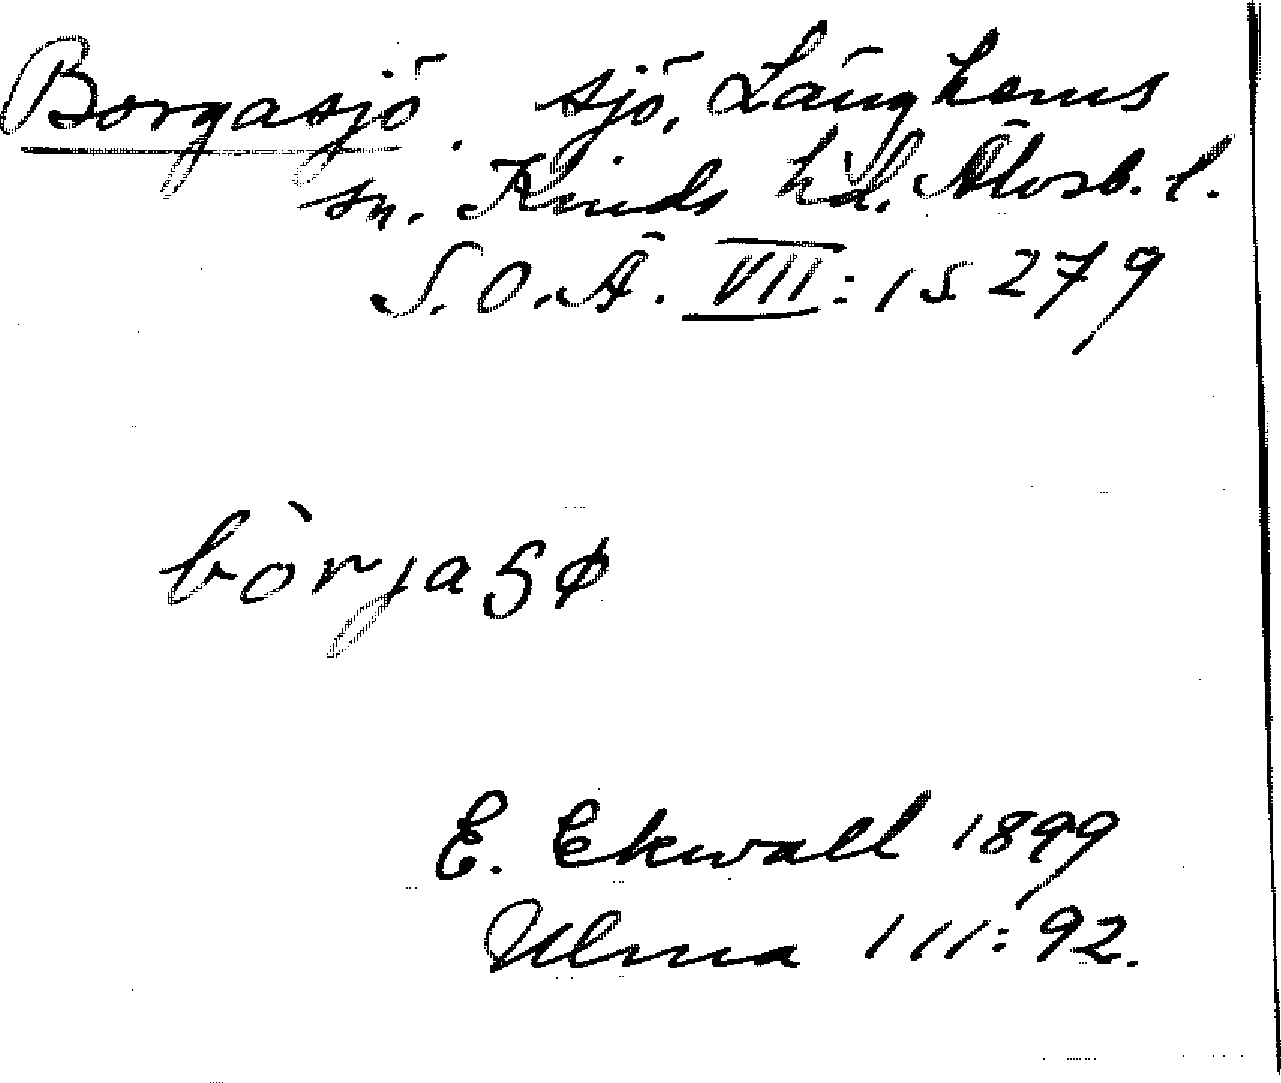 Borgasjö. sjö, Länghems
sn. Kinds hd. Älvsb. l.
S.O.Ä. VII: 1 S 279
bòrjasø
E. Ekwall 1899
Ulma 111:92.